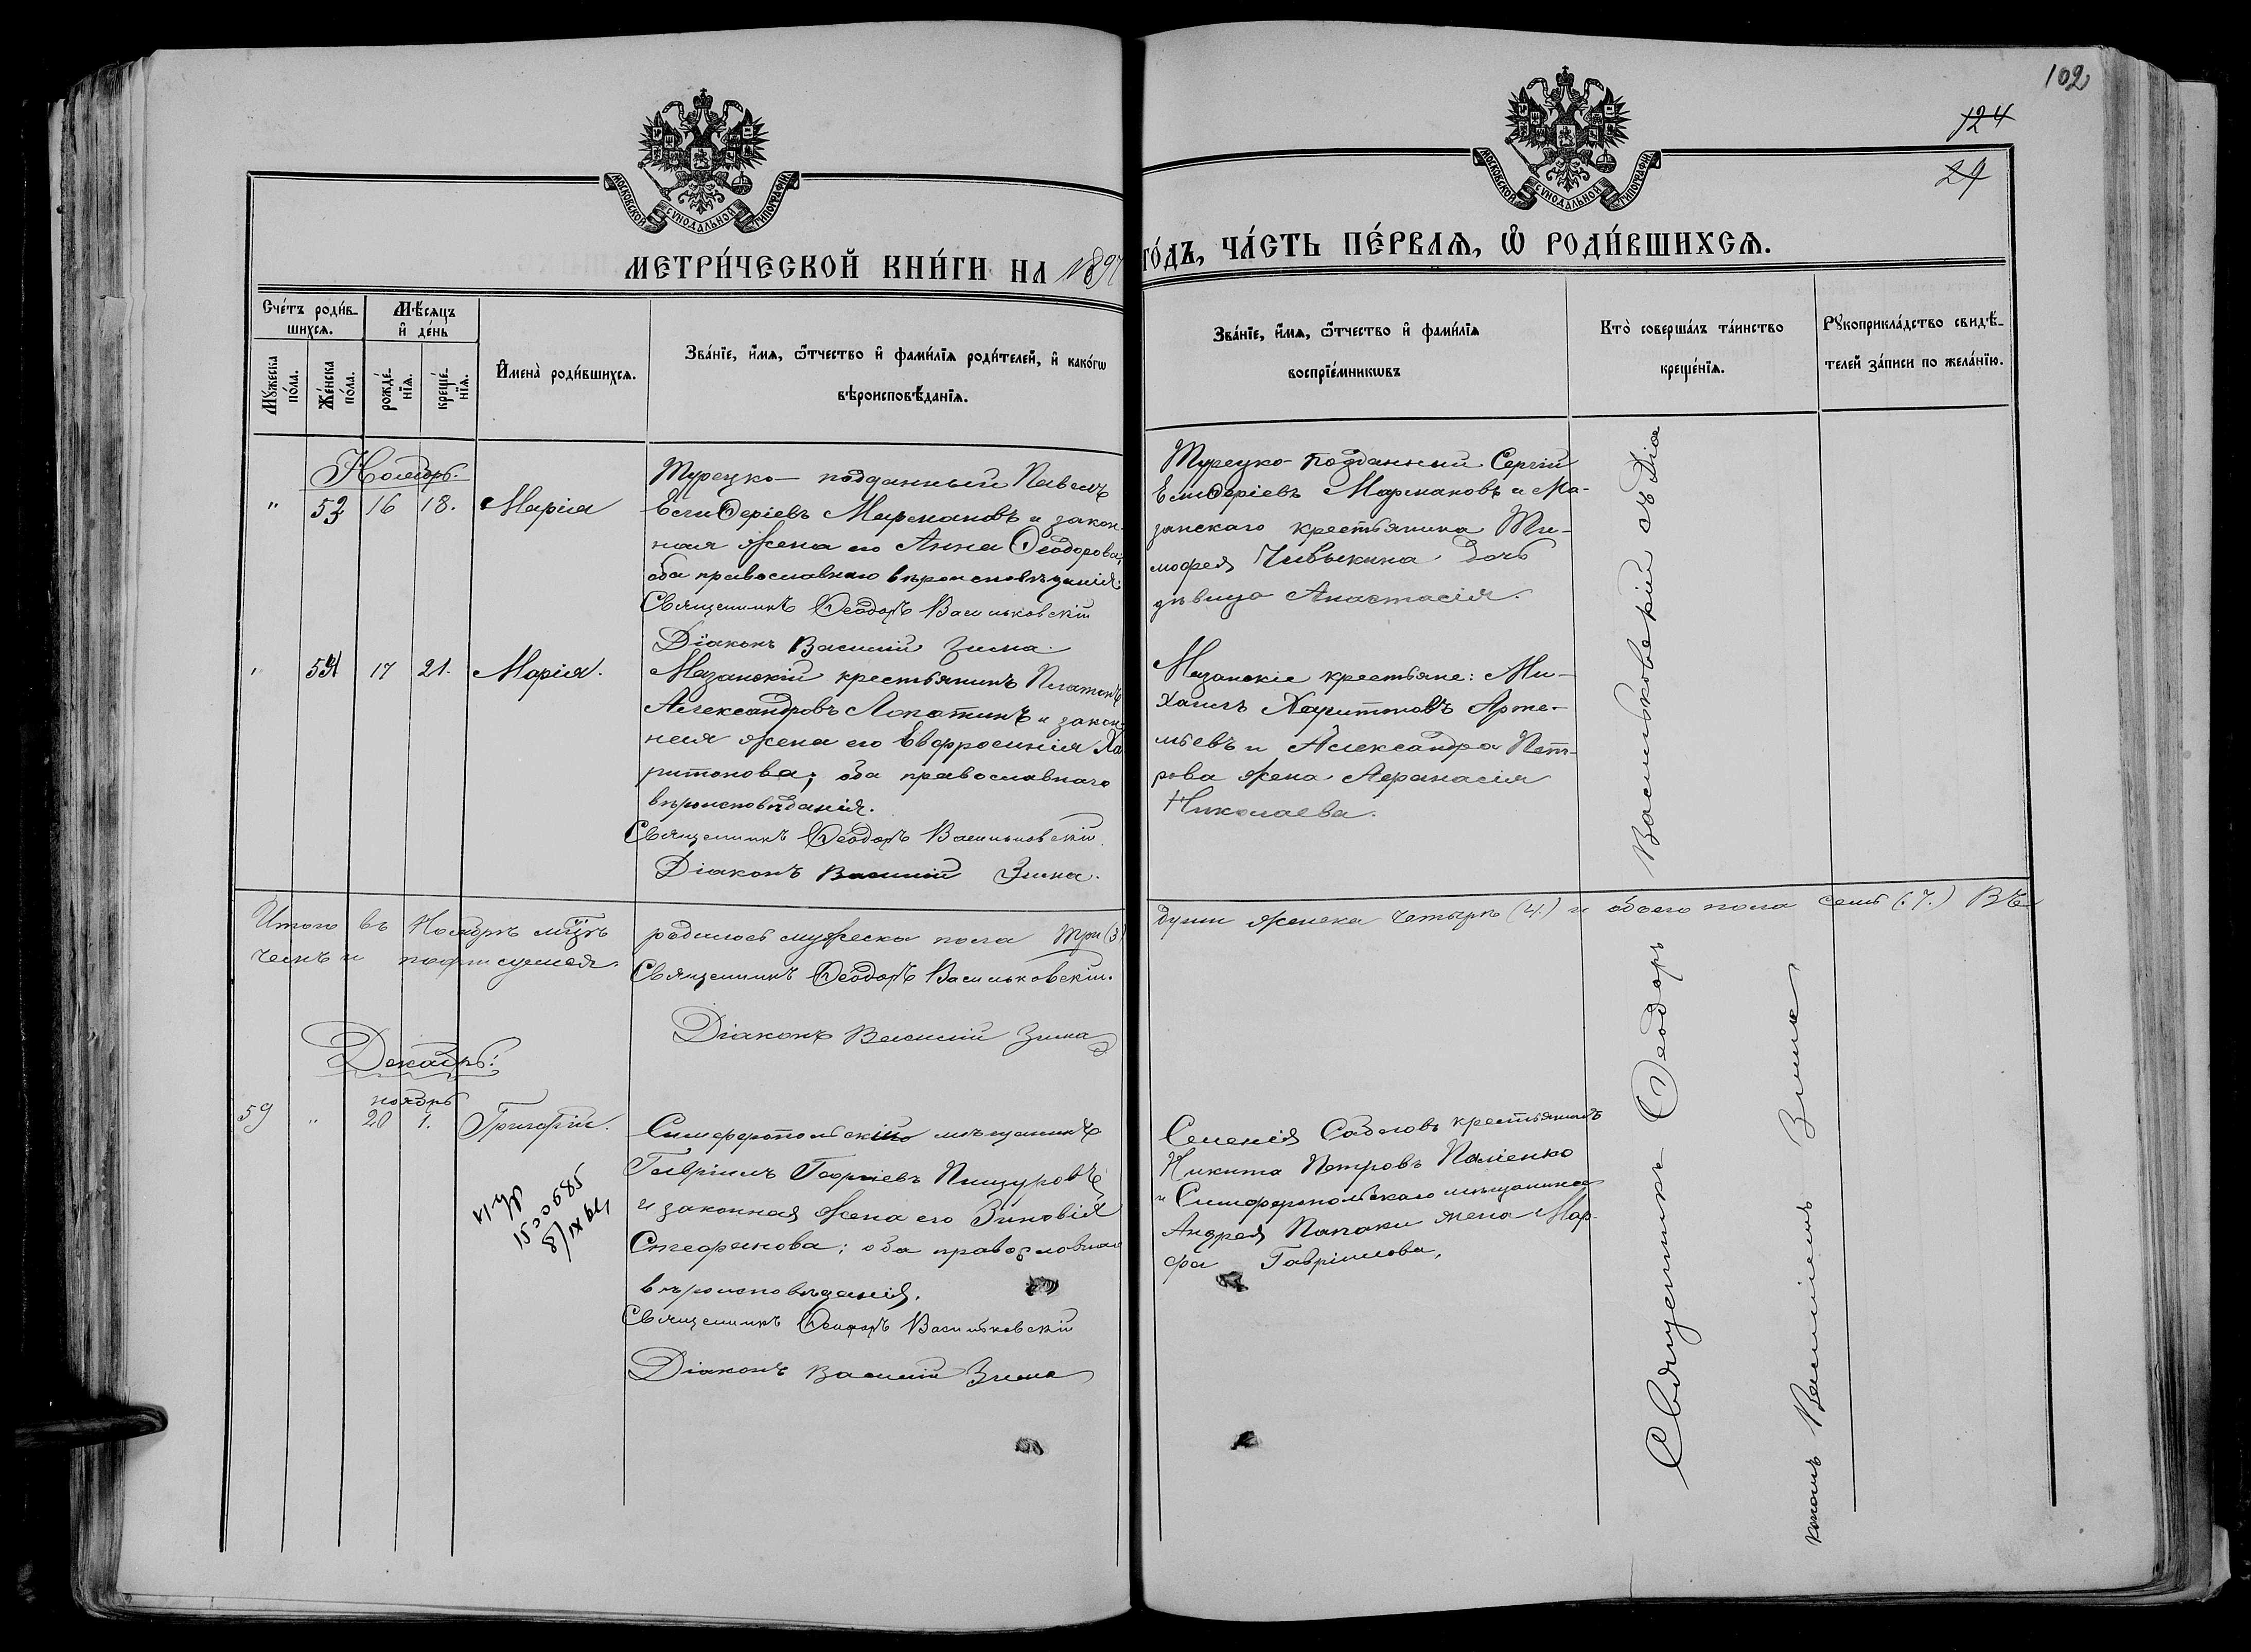 102
124
29
МОСКОВСКОЙ СѴНОДАЛЬНОЙ ТИПОГРАФІИ
МОСКОВСКОЙ СѴНОДАЛЬНОЙ ТИПОГРАФІИ
МЕТРИ́ЧЕСКОЙ КНИ́ГИ НА 1897
ГО́ДЪ, ЧА́СТЬ ПЕ́РВАѦ, Ѽ РОДИ́ВШИХСѦ.
Сче́тъ роди́в-
шихсѧ.
Мꙋ́жеска
по́ла.
Же́нска
по́ла.
Мѣ́сѧцъ
и҆ де́нь
рожде́-
нїѧ.
креще́-
нїѧ.
И҆мена̀ роди́вшихсѧ.
Зва́нїе, и҆́мѧ, ѻ҆́тчество и҆ фами́лїѧ роди́телей, и҆ како́гѡ
вѣроисповѣ́данїѧ.
Зва́нїе, и҆́мѧ, ѻ҆́тчество и҆ фами́лїѧ
воспрїе́мникѡвъ
Кто̀ соверша́лъ та́инство
креще́нїѧ.
Рꙋкоприкла́дство свидѣ́-
телей за́писи по жела́нїю.
Ноябрь.
" 53 16 18. Марія
Турецко-подданный Павелъ
Марманов и закон-
ная жена его Анна Ѳеодорова,
оба православнаго вѣроисповѣданія.
Священникъ Ѳеодоръ Васильковскій
Діаконъ Василій Зима.
Турецко-подданный Сергій
Мармановъ и Ма-
занскаго крестьянина Ти-
мофея Чибыкина дочь
дѣвица Анастасія.
" 54 17 21. Марія.
Мазанскій крестьянинъ Платонъ
Александровъ Лопатинъ и закон-
ная жена его Евфросинія Ха
ритонова; оба православнаго
вѣроисповѣданія.
Священникъ Ѳеодоръ Васильковскій
Діаконъ Василій Зима.
Мазанскіе крестьяне: Ми-
хаилъ Харитоновъ Арте-
мьевъ и Александра Пет-
рова жена Афанасія
Николаева.
Итого въ Ноябрѣ мцѣ родилось мужеска пола три (3)
души женска четыре (4.) и обоего пола семь (7.) Въ
чемъ и подписуемся.
Священникъ Ѳеодоръ Васильковскій.
Діаконъ Василій Зима
Декабрь:
ноябрь
59 " 20 1. Григорій.
Симферопольскій мѣщанинъ
Гавріилъ Георгіевъ Пищуровъ
и законная жена его Зиновія
Стефанова; оба православнаго
вѣроисповѣданія.
Священникъ Ѳеодоръ Васильковскій
Діаконъ Василій Зима
крестьянинъ
Никита Петровъ Паліенко
и Симферопольскаго мѣщанина
Андрея Папаки жена Мар-
фа Гавріилова.
Священникъ Ѳеодоръ Васильковскій съ Діа
кономъ Василіемъ Зима